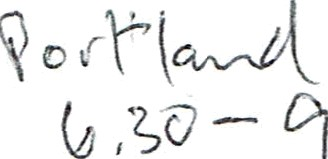 Portland
6.30-9